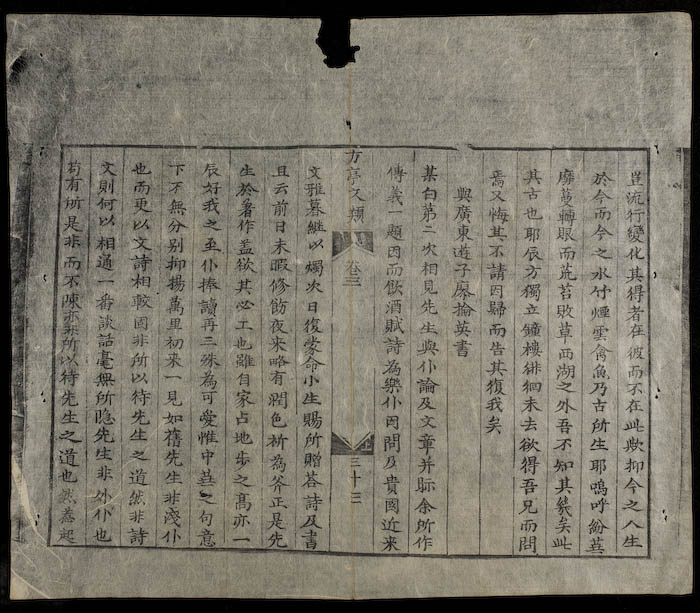 豈流行變化其得者在彼而不在此歟抑今之人生
於今而今之水竹煙雲禽魚乃古所生耶嗚呼紛華
靡蔓轉眼而荒苔敗草西湖之外吾不知其幾矣此
其古也耶辰方獨立鐘樓徘徊未去欲得吾兄而問
焉又悔其不請因歸而告其復我矣
與廣東遊子廖掄英書
某白第二次相見先生與仆論及文章并眎余所作
傳義一題因而飲酒賦詩為樂仆因問及貴國近來
方亭文類
卷三
三十三
文雅暮継以燭次日復蒙命小生賜所贈答詩及書
且云前日未暇修飭夜來略有潤色祈為斧正是先
生於著作盖欲其必工也雖自家占地步之髙亦一
辰好我之至仆捧讀再三殊為可愛惟中華之句意
下不無分别抑揚萬里初來一見如舊先生非淺仆
也而更以文詩相較固非所以待先生之道然非詩
文則何以相通一番談話毫無所隐先生非外仆也
苟有所是非而不陳亦非所以待先生之道也然葢起